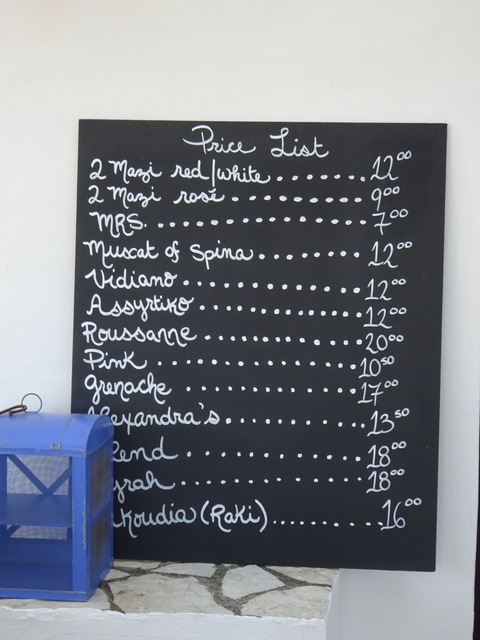 Price List
2 Mazi red/white....... 12⁰⁰
2 Mazi rosé.......... 9⁰⁰
MRS............... 7⁰⁰
Muscat of Spina........ 12⁰⁰
Vidiano............ 12⁰⁰
Assyrtiko........... 12⁰⁰
Roussanne........... 20⁰⁰
Pink............. 10⁵⁰
Grenache........... 17⁰⁰
Alexandra's.......... 13⁵⁰
lend............. 18⁰⁰
yrah............. 18⁰⁰
koudia (Raki).......... 16⁰⁰